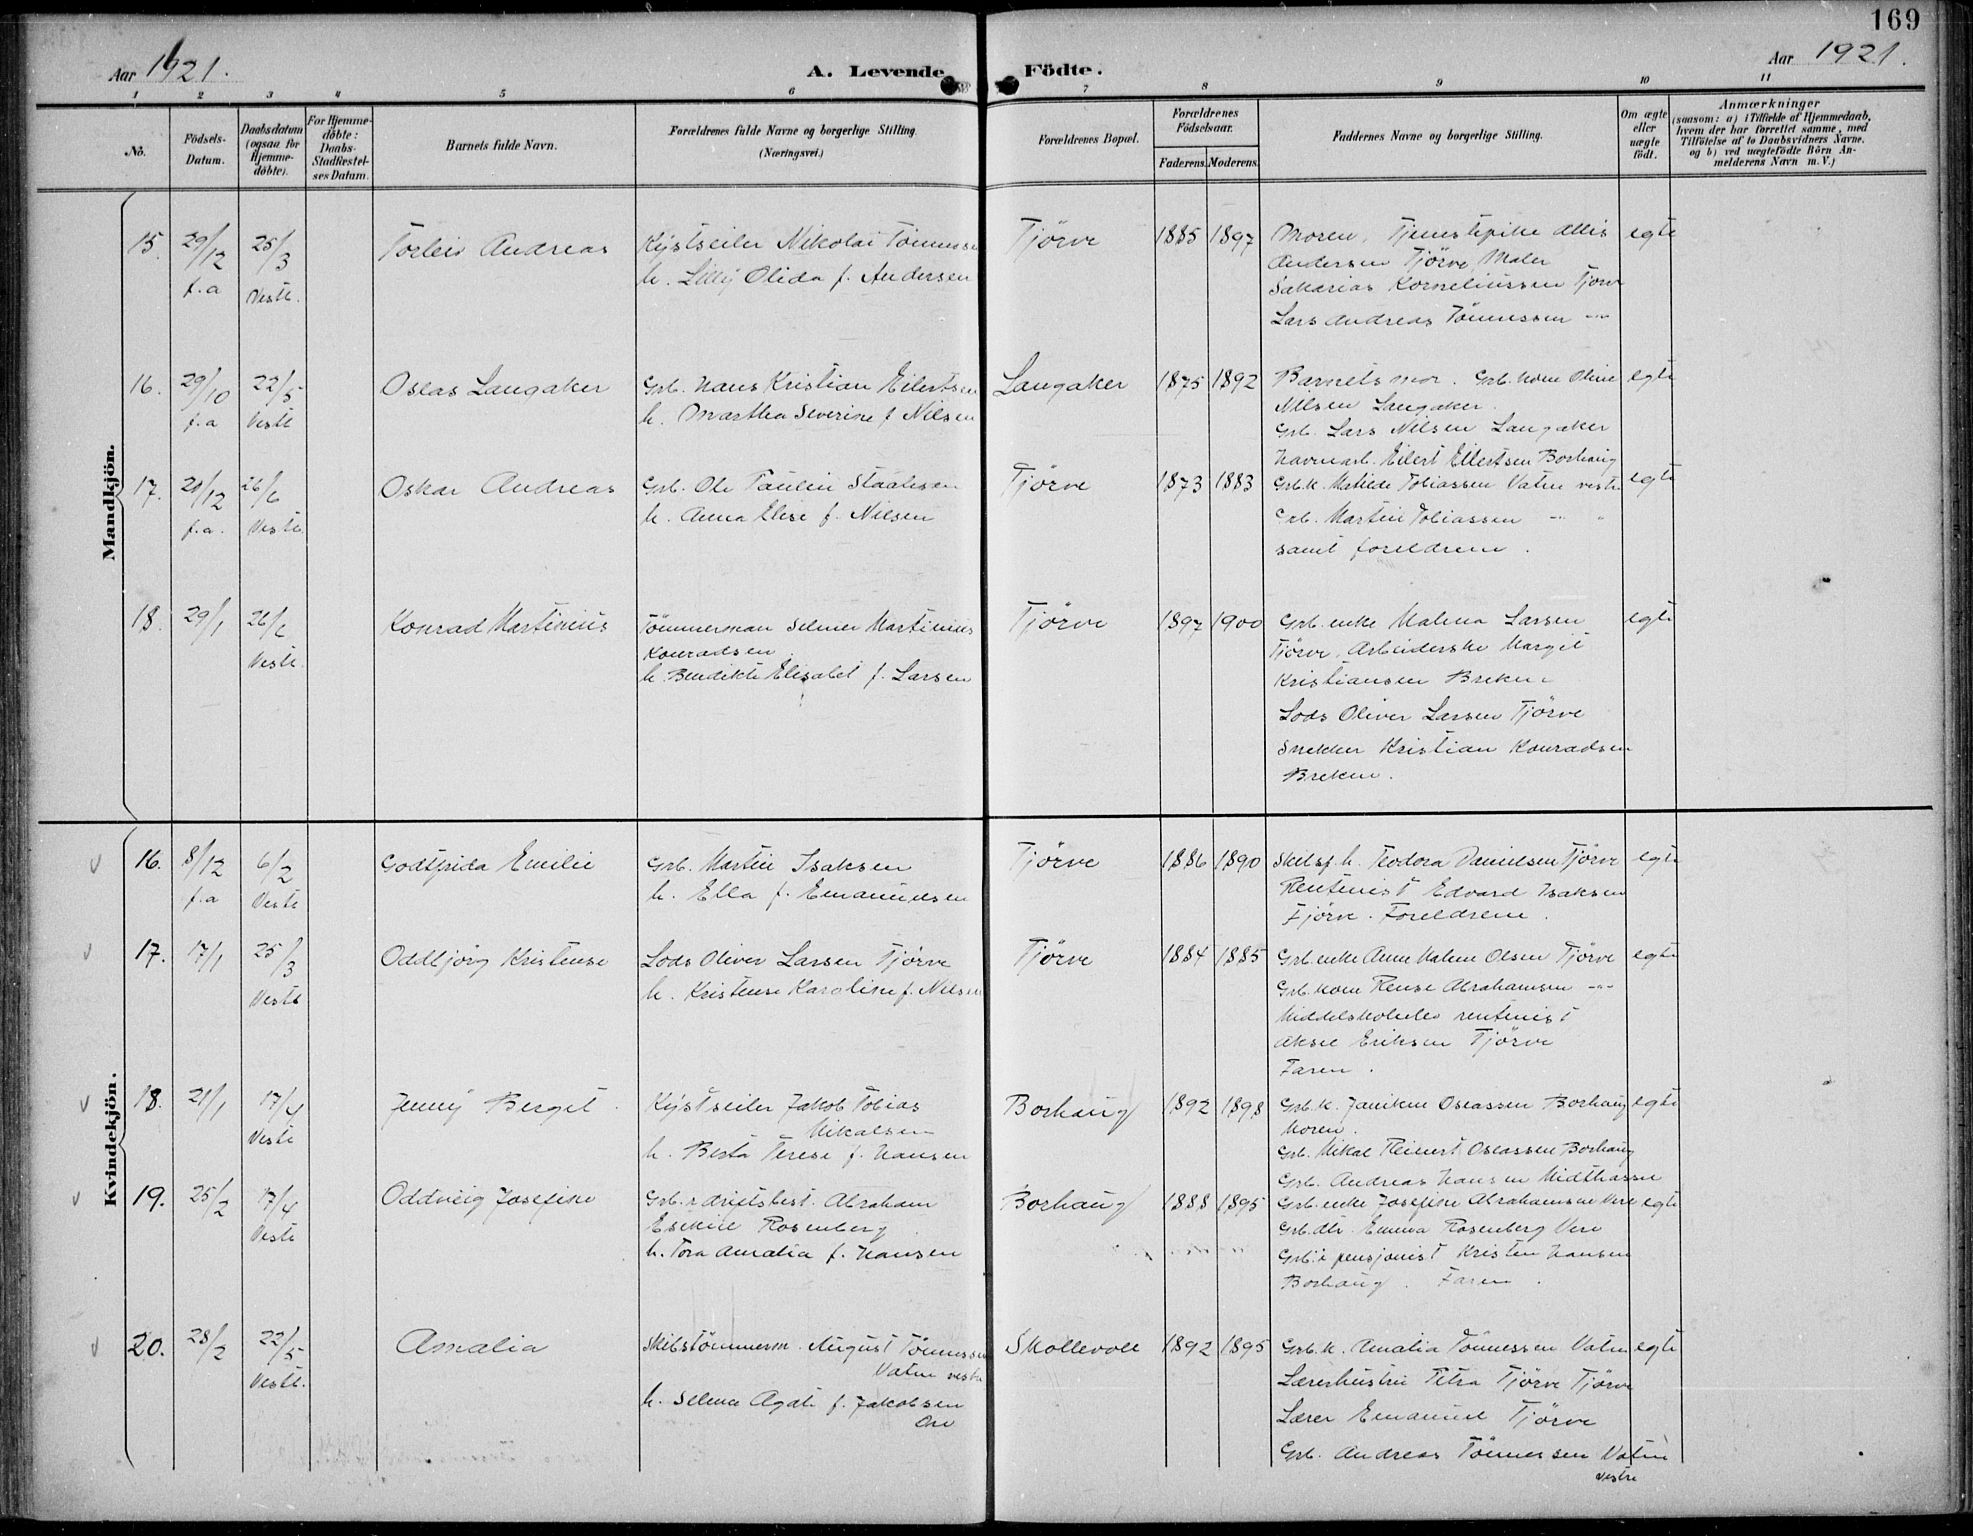 169
Aar 1921.
A. Levende Födte.
Aar 1921.
1 2 3 4 5 6 7 8 9 10 11
No.
Födsels-
Datum.
Daabsdatum
(ogsaa for
Hjemme-
döbte).
For Hjemme-
döbte:
Daabs-
Stadfæstel-
ses Datum.
Barnets fulde Navn.
Forældrenes fulde Navne og borgerlige Stilling.
(Næringsvei.)
Forældrenes Bopæl.
Forældrenes
Födselsaar.
Faderens. Moderens.
Faddernes Navne og borgerlige Stilling.
Om ægte
eller
uægte
födt.
Anmærkninger
(saasom: a) i Tilfælde af Hjemmedaab,
hvem der har forrettet samme, med
Tilföielse af to Daabsvidners Navne,
og b) ved uægtefödte Börn An-
melderens Navn m. V.)
Mandkjön.
15. 29/12 f.a
25/3 Vestl.
Torleiv Andreas
Kystseiler Nikolai Tönnessen
h. Lilly Olida f. Andersen
Tjörve
1885 1897
Moren, Tjenestepike Allis
Andersen Tjörve, Maler
Sakarias Korneliussen Tjörve
Lars Andreas Tönnessen -"-
egte
16. 29/10 f.a
22/5 Vestl
Oseas Langaker
Grb. Hans Kristian Eilertsen
h. Martha Severine f. Nilsen
Langaker
1875 1892
Barnets mor. Grb. kone Oline
Nilsen Langaker.
Grb. Lars Nilsen Langaker
Havnearb. Eilert Eilertsen Borhaug
egte
17. 21/12 f.a.
26/6 Vestl.
Oskar Andreas
Grb. Ole Paulin Staalesen
h. Anna Elise f. Nilsen
Tjörve
1873 1883
Grb.k. Matilde Tobiassen Vatne vestre
Grb. Martin Tobiassen -"- "
samt foreldrene.
egte
18. 29/1
26/6 Vestl.
Konrad Martinius
Tömmerman Selmer Martinius
Konradsen
h. Bendikte Elisabet f. Larsen
Tjörve
1897 1900
Grb. enke Malena Larsen
Tjörve. Arbeiderske Margit
Kristiansen Brekne
Lods Oliver Larsen Tjörve
Snekker Kristian Konradsen
Brekne.
egte
Kvindekjön.
16. 8/12 f.a
6/2 Vestl
Godtfrida Emilie
Grb. Martin Isaksen
h. Ella f. Emanuelsen
Tjörve
1886 1890
Skilsf. h. Teodora Danielsen Tjörve
Rentenist Edvard Isaksen
Tjörve. Foreldrene.
egte
17. 17/1
25/3 Vestl
Oddbjörg Kristense
Lods Oliver Larsen Tjörve
h. Kristense Karoline f. Nilsen
Tjörve
1884 1885
Grb. enke Anne Malene Olsen Tjörve
Grb. kone Rense Abrahamsen -"-
Middelskoleelev rentenist
Aksel Eriksen Tjörve
Faren.
egte
18. 21/1
17/4 Vestl
Jenny Berget.
Kystseiler Jakob Tobias
Mikalsen
h. Berta Terese f. Hansen
Borhaug
1892 1898
Grb. k. Janikne Oseassen Borhaug
Moren.
Grb. Mikal Reinert Oseassen Borhaug
Grb. Andreas Hansen Midthassel
egte
19. 25/2
17/4 Vestl
Oddveig Josefine
Grb. & driftsbest. Abraham
Esekiel Rosenberg
h. Tora Amalia f. Hansen
Borhaug
1888 1895
Grb. enke Josefine Abrahamsen Vere
Grb. dtr. Emma Rosenberg Vere
Grb. & pensjonist Kristen Hansen
Borhaug. Faren.
egte
20. 28/2
22/5 Vestl.
Amalia
Skibstömmerm. August Tönnessen
Vatne vestre
h. Selma Agate f. Jakobsen
Ore
Skollevoll
1892 1895
Grb.k. Amalia Tönnessen Vatne
Lærerhustru Petra Tjörve Tjörve
Lærer Emanuel Tjörve
Grb. Andreas Tönnessen Vatne
vestre
egte